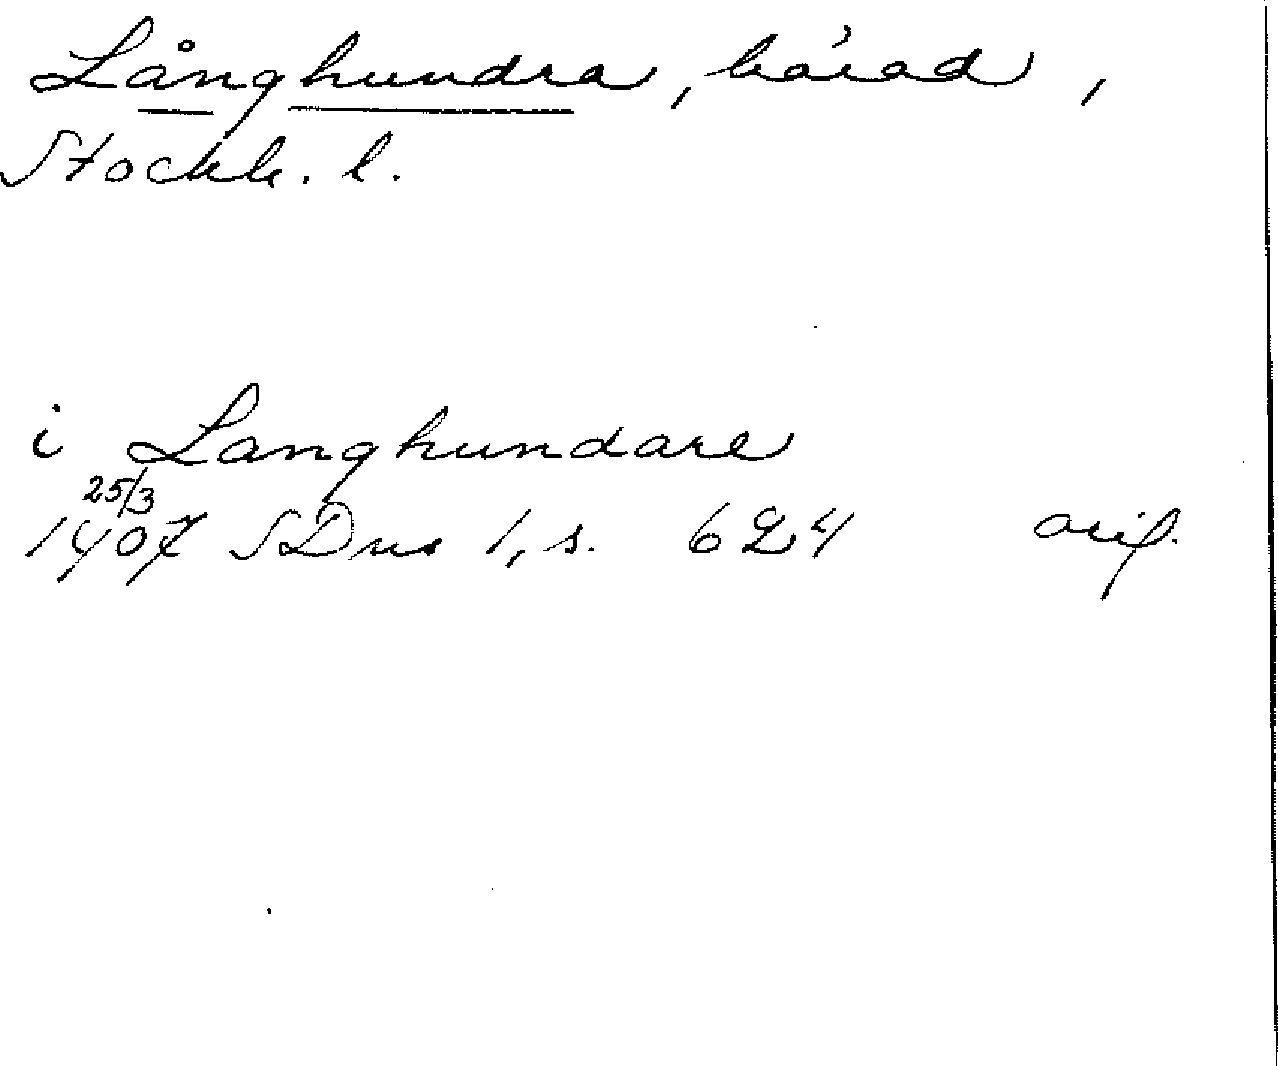 Långhundra, härad,
Stockh. l.
i Langhundare
25/3
1407 SDns 1, s. 624 orig.